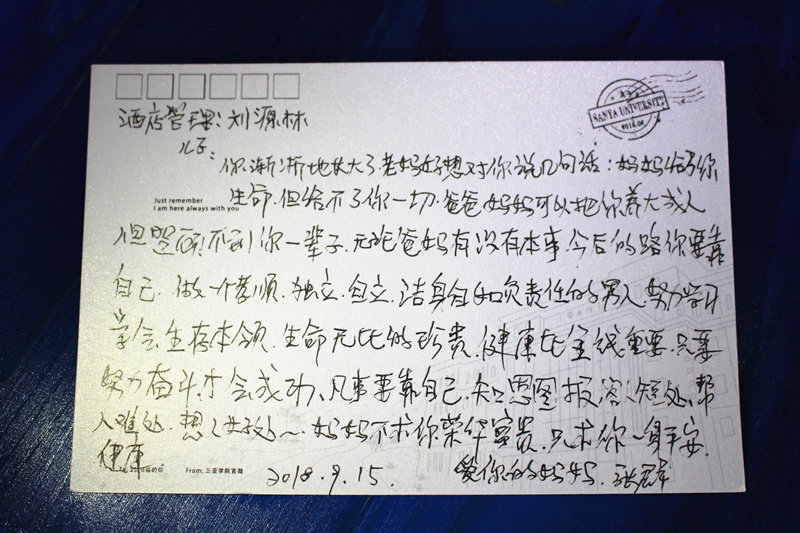 SANYA UNIVERSITY
酒店管理：刘源林
儿子：
你渐渐地长大了.老妈好想对你说几句话：妈妈给了你
Just remember
I am here always with you
生命.但给不了你一切.爸爸妈妈可以把你养大成人
但照顾不到你一辈子.无论爸妈有没有本事.今后的路你要靠
自己.做一个孝顺.独立.自立.洁身自好负责任的男人.努力学习
学会生存本领.生命无比的珍贵.健康比金钱重要.只要
努力奋斗.才会成功、凡事要靠自己.知恩图报.容人短处.帮
人难处.想人好处.妈妈不求你荣华富贵.只求你一身平安.
健康
From: 三亚学院官微
2018.9.15.
爱你的妈妈.张